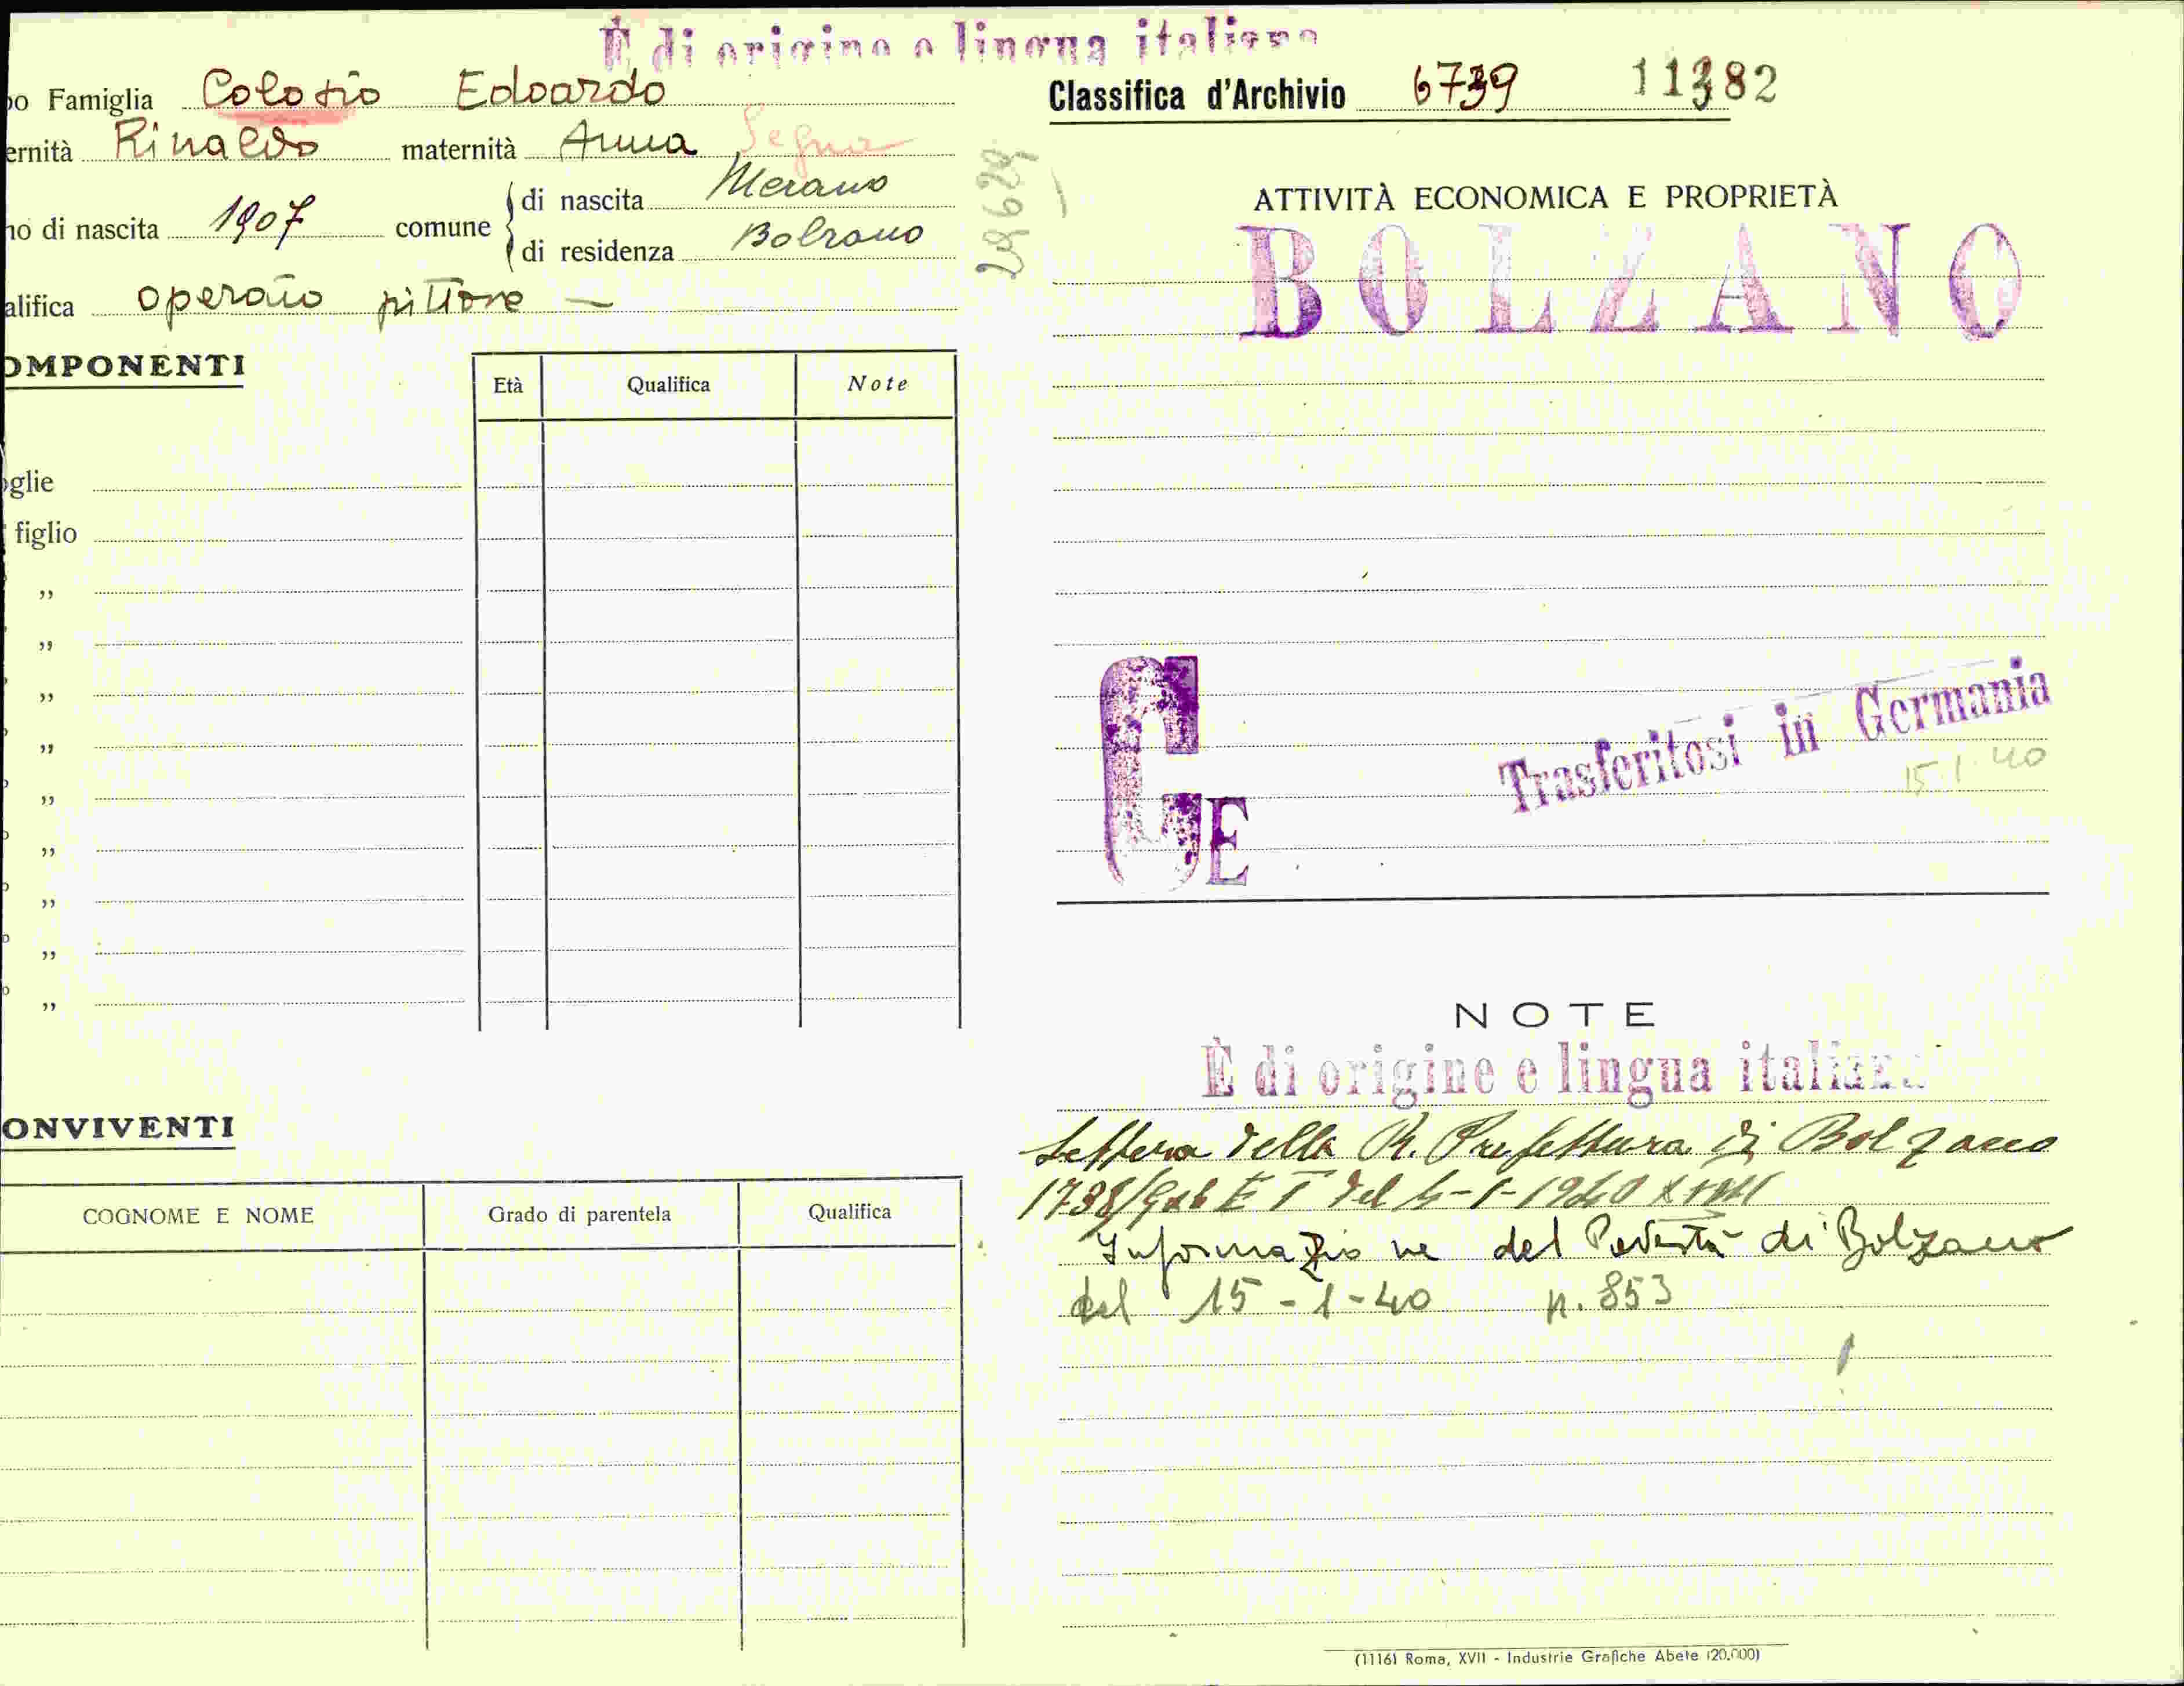 È di origine e lingua italiana
po Famiglia Colosio Edoardo
ernità Rinaldo maternità Anna Segna
no di nascita 1907 comune di nascita Merano
di residenza Bolzano
alifica operaio pittore —
OMPONENTI
Età Qualifica Note
oglie
figlio
„
„
„
„
„
„
„
„
„
ONVIVENTI
COGNOME E NOME Grado di parentela Qualifica
29629
Classifica d'Archivio 6739 11382
ATTIVITÀ ECONOMICA E PROPRIETÀ
BOLZANO
G E
Trasferitosi in Germania
15.1.40
NOTE
È di origine e lingua italiana
Lettera della R. Prefettura di Bolzano
1738/Gab E T del 4-1-1940 XVIII
Informazione del Podestà di Bolzano
del 15-1-40 n. 853
(1116) Roma, XVII - Industrie Grafiche Abete (20.000)